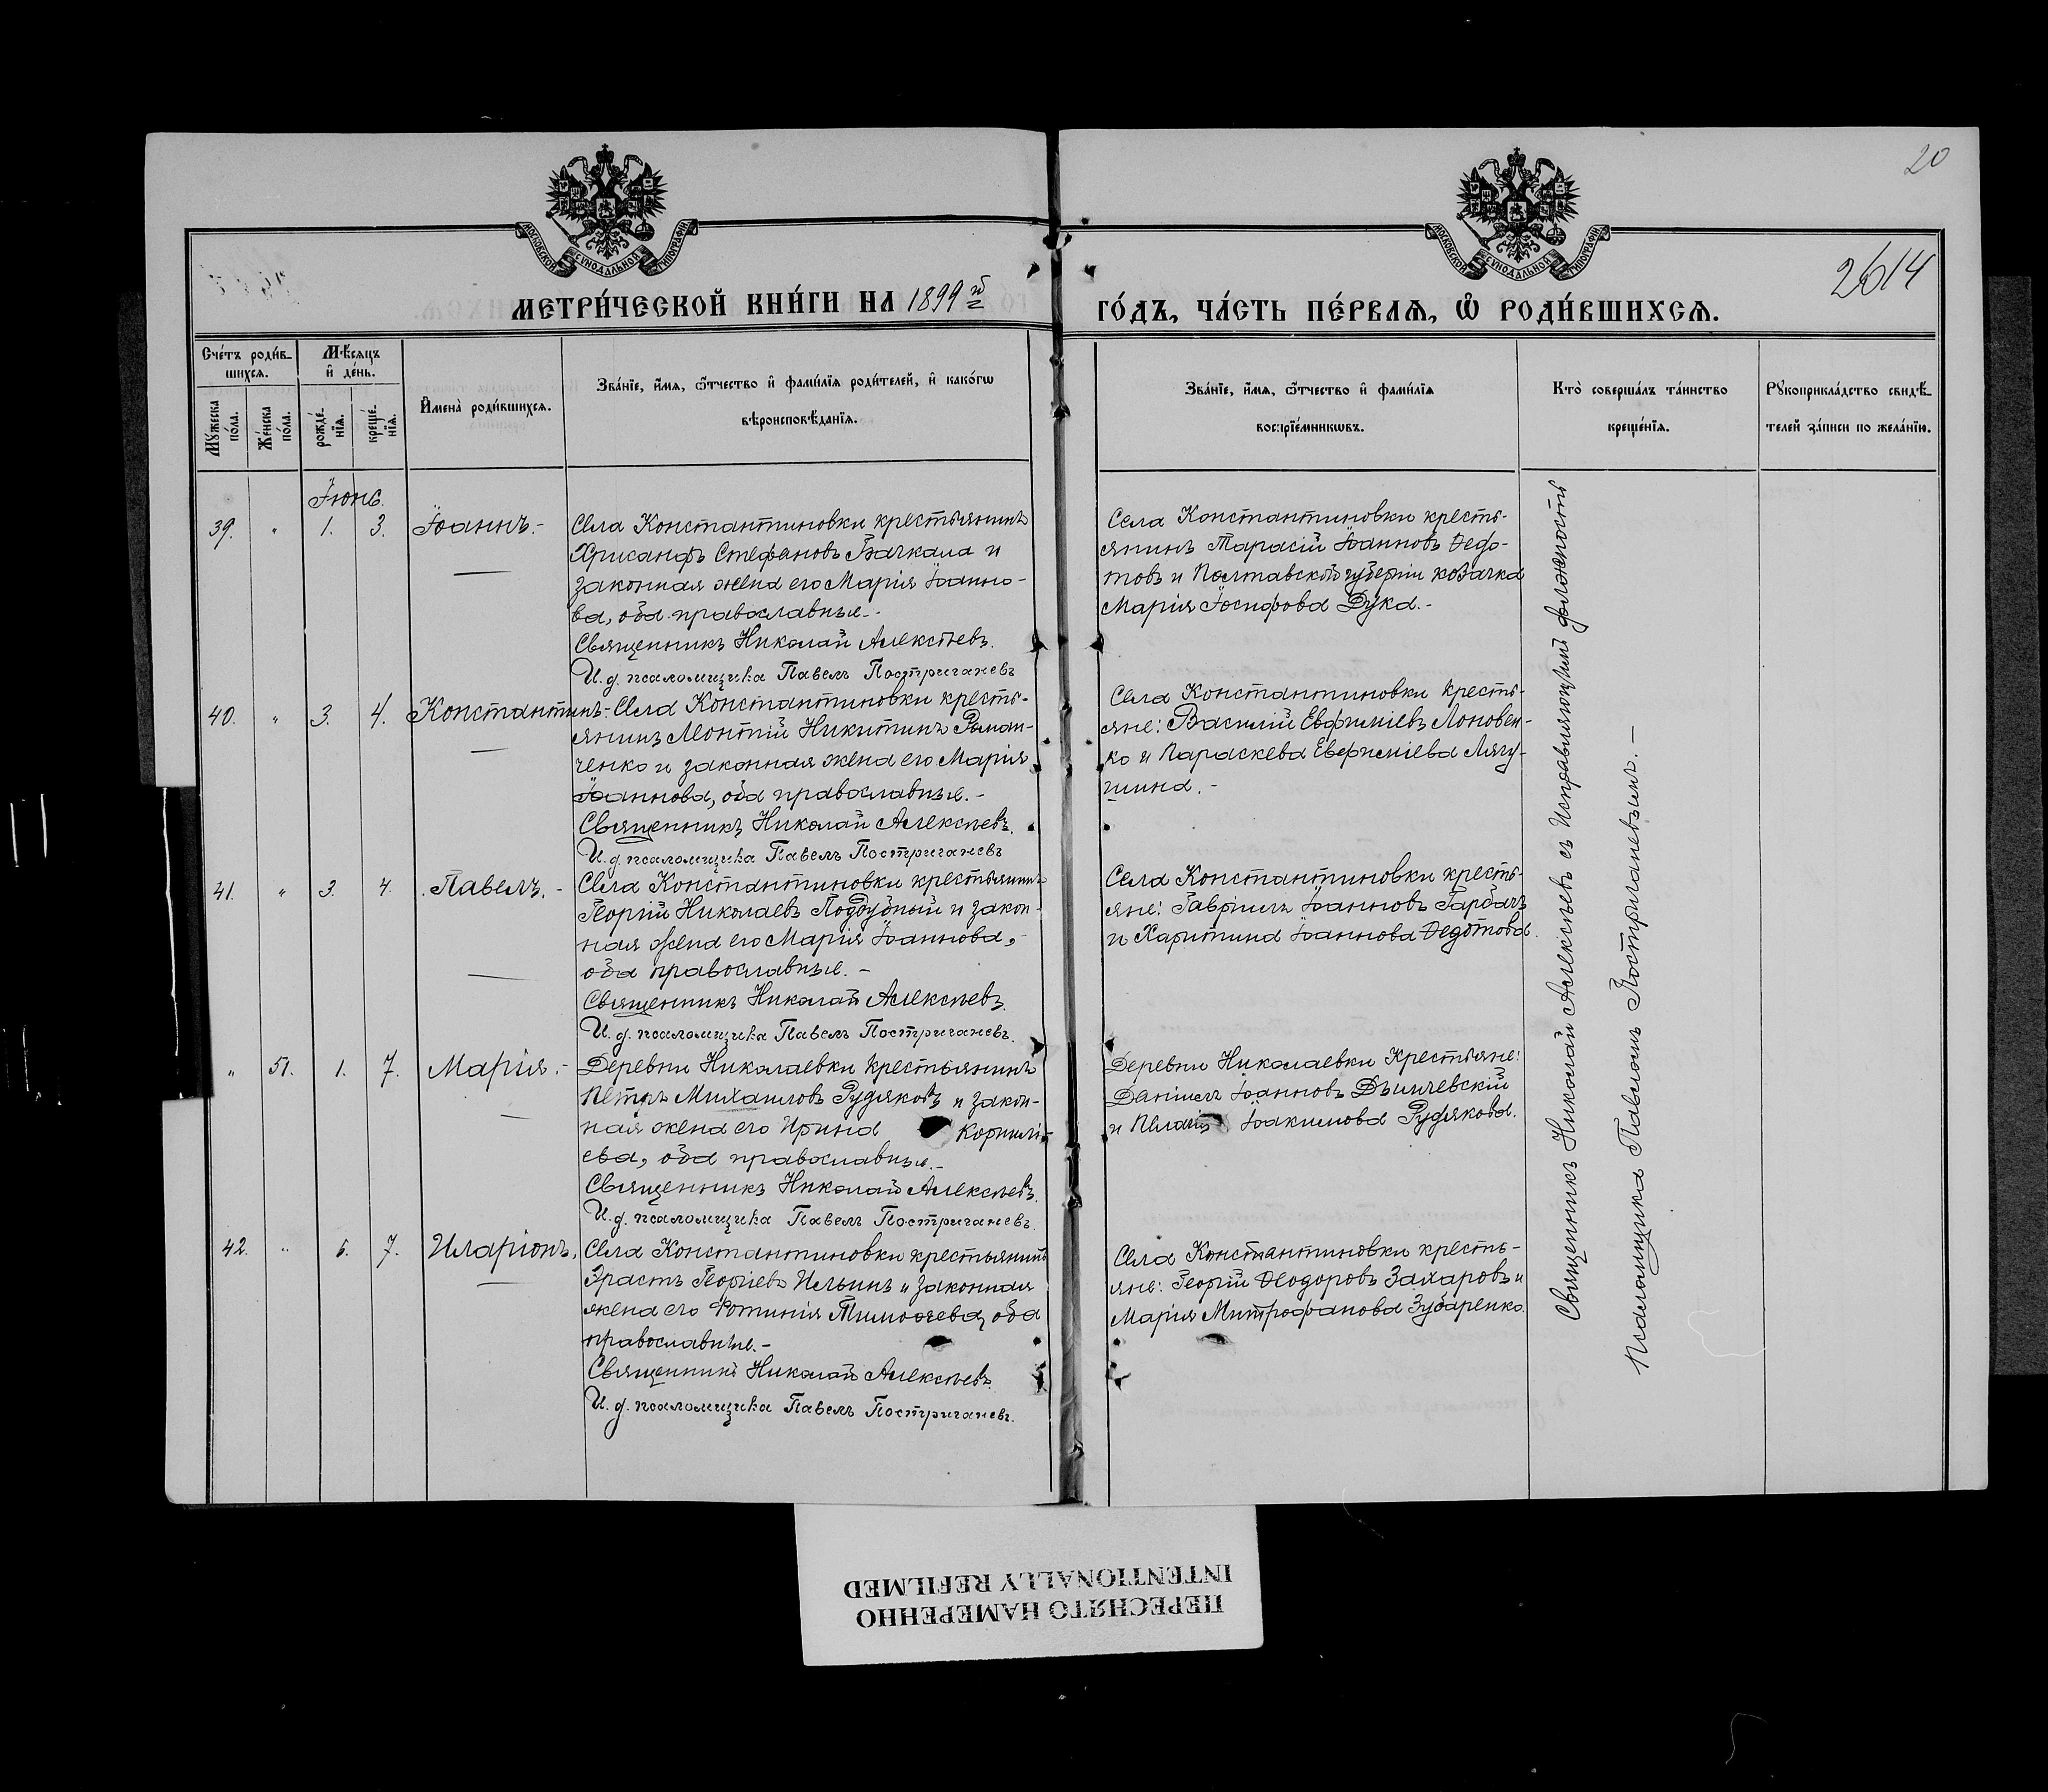 20
2614
МОСКОВСКОЙ СУНОДАЛЬНОЙ ТИПОГРАФІИ
МОСКОВСКОЙ СУНОДАЛЬНОЙ ТИПОГРАФІИ
МЕТРИ́ЧЕСКОЙ КНИ́ГИ НА 1899й
ГО́ДЪ, ЧА́СТЬ ПЕ́РВАѦ, Ѡ҆ РОДИ́ВШИХСѦ.
Сче́тъ роди́в-
шихсѧ.
Мѣ́сѧцъ
и҆ де́нь.
Мꙋ́жеска
по́ла.
Же́нска
по́ла.
рожде́-
нїѧ.
креще́-
нїѧ.
И҆мена̀ роди́вшихсѧ.
Зва́нїе, и҆́мѧ, ѻ҆́тчество и҆ фами́лїѧ роди́телей, и҆ како́гѡ
вѣроисповѣ́данїѧ.
Зва́нїе, и҆́мѧ, ѻ҆́тчество и҆ фами́лїѧ
воспрїе́мникѡвъ.
Кто̀ соверша́лъ та́инство
креще́нїѧ.
Рꙋкоприкла́дство свидѣ́-
телей за́писи по жела́нїю.
Іюнь.
39. " 1. 3. Іоаннъ.-
Села Константиновки крестьянинъ
Хрисанфъ Стефановъ Бачкала и
законная жена его Марія Іоанно-
ва, оба православные.-
Священникъ Николай Алексѣевъ.
И. д. псаломщика Павелъ Постригачевъ
Села Константиновки кресть-
янинъ Тарасій Іоанновъ Ѳедо-
товъ и Полтавской губерніи козачка
Марія Іосифова Дука.-
40. " 3. 4. Константинъ.-
Села Константиновки кресть-
янинъ Леонтій Никитинъ Роман-
ченко и законная жена его Марія
Іоаннова, оба православные.-
Священникъ Николай Алексѣевъ.
И. д. псаломщика Павелъ Постригачевъ
Села Константиновки кресть-
яне: Василій Евфиміевъ Лоновен-
ко и Параскева Евфиміева Лягу-
шина.-
41. " 3. 4. Павелъ.-
Села Константиновки крестьянинъ
Георгій Николаевъ Поддубный и закон-
ная жена его Марія Іоаннова,
оба православные.-
Священникъ Николай Алексѣевъ.
И. д. псаломщика Павелъ Постригачевъ.
Села Константиновки кресть-
яне: Гавріилъ Іоанновъ Гарбачъ
и Харитина Іоаннова Ѳедотова.
" 51. 1. 7. Марія.-
Деревни Николаевки крестьянинъ
Петръ Михаиловъ Рудяковъ и закон-
ная жена его Ирина Корнилі-
ева, оба православные.-
Священникъ Николай Алексѣевъ.
И. д. псаломщика Павелъ Постригачевъ.
Деревни Николаевки Крестьяне:
Даніилъ Іоанновъ
и Іоакимова Рудякова.
42. " 5. 7. Иларіонъ.
Села Константиновки крестьянинъ
Эрастъ Георгіевъ Ильинъ и законная
жена его Фотинія Тимоѳеева, оба
православные.-
Священникъ Николай Алексѣевъ.
И. д. псаломщика Павелъ Постригачевъ.
Села Константиновки кресть-
яне: Георгій Ѳеодоровъ Захаровъ и
Марія Митрофанова Зубаренко.
Священникъ Николай Алексѣевъ съ Исправляющимъ должность
Псаломщика Павломъ Постригачевымъ.-
ПЕРЕСНЯТО НАМЕРЕННО
INTENTIONALLY REFILMED